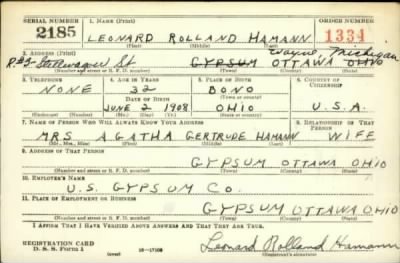 SERIAL NUMBER 1. NAME (Print) ORDER NUMBER
2185 LEONARD ROLLAND HAMANN 1334
(First) (Middle) (Last)
2. ADDRESS (Print) Wayne, Michigan
R#3 St GYPSUM OTTAWA OHIO
(Number and street or R. F. D. number) (Town) (County) (State)
3. TELEPHONE 4. AGE IN YEARS 5. PLACE OF BIRTH 6. COUNTRY OF CITIZENSHIP
NONE 32 BONO
DATE OF BIRTH (Town or county)
JUNE 2 1908 OHIO U.S.A.
(Exchange) (Number) (Mo.) (Day) (Yr.) (State or country)
7. NAME OF PERSON WHO WILL ALWAYS KNOW YOUR ADDRESS 8. RELATIONSHIP OF THAT PERSON
MRS AGATHA GERTRUDE HAMANN WIFE
(Mr., Mrs., Miss) (First) (Middle) (Last)
9. ADDRESS OF THAT PERSON
GYPSUM OTTAWA OHIO
(Number and street or R. F. D. number) (Town) (County) (State)
10. EMPLOYER'S NAME
U.S. GYPSUM CO.
11. PLACE OF EMPLOYMENT OR BUSINESS
GYPSUM OTTAWA OHIO
(Number and street or R. F. D. number) (Town) (County) (State)
I AFFIRM THAT I HAVE VERIFIED ABOVE ANSWERS AND THAT THEY ARE TRUE.
REGISTRATION CARD
D. S. S. Form 1 (over) 16—17105 Leonard Rolland Hamann
(Registrant's signature)